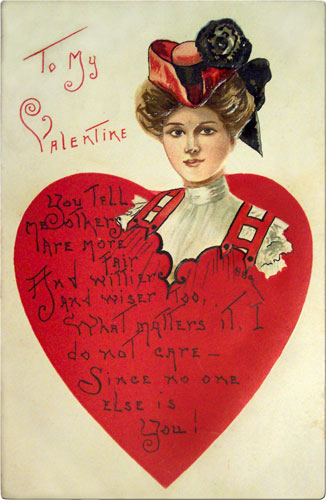 To My
Valentine
You Tell
me others
are more
fair
And wittier
and wiser too,
What matters it, I
do not care –
Since no one
else is
You!